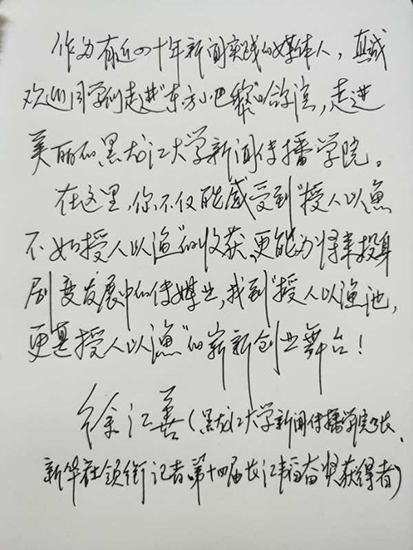 作为有近四十年新闻实践的媒体人，真诚
欢迎同学们走进“东方小巴黎”哈尔滨，走进
美丽的黑龙江大学新闻传播学院。
在这里，你不仅能感受到“授人以鱼
不如授人以渔”的收获，更能为将来投身
剧变发展中的传媒业，找到“授人以渔池，
更是授人以渔”的崭新创业舞台！
徐江善（黑龙江大学新闻传播学院院长、
新华社领衔记者、第十四届长江韬奋奖获得者）